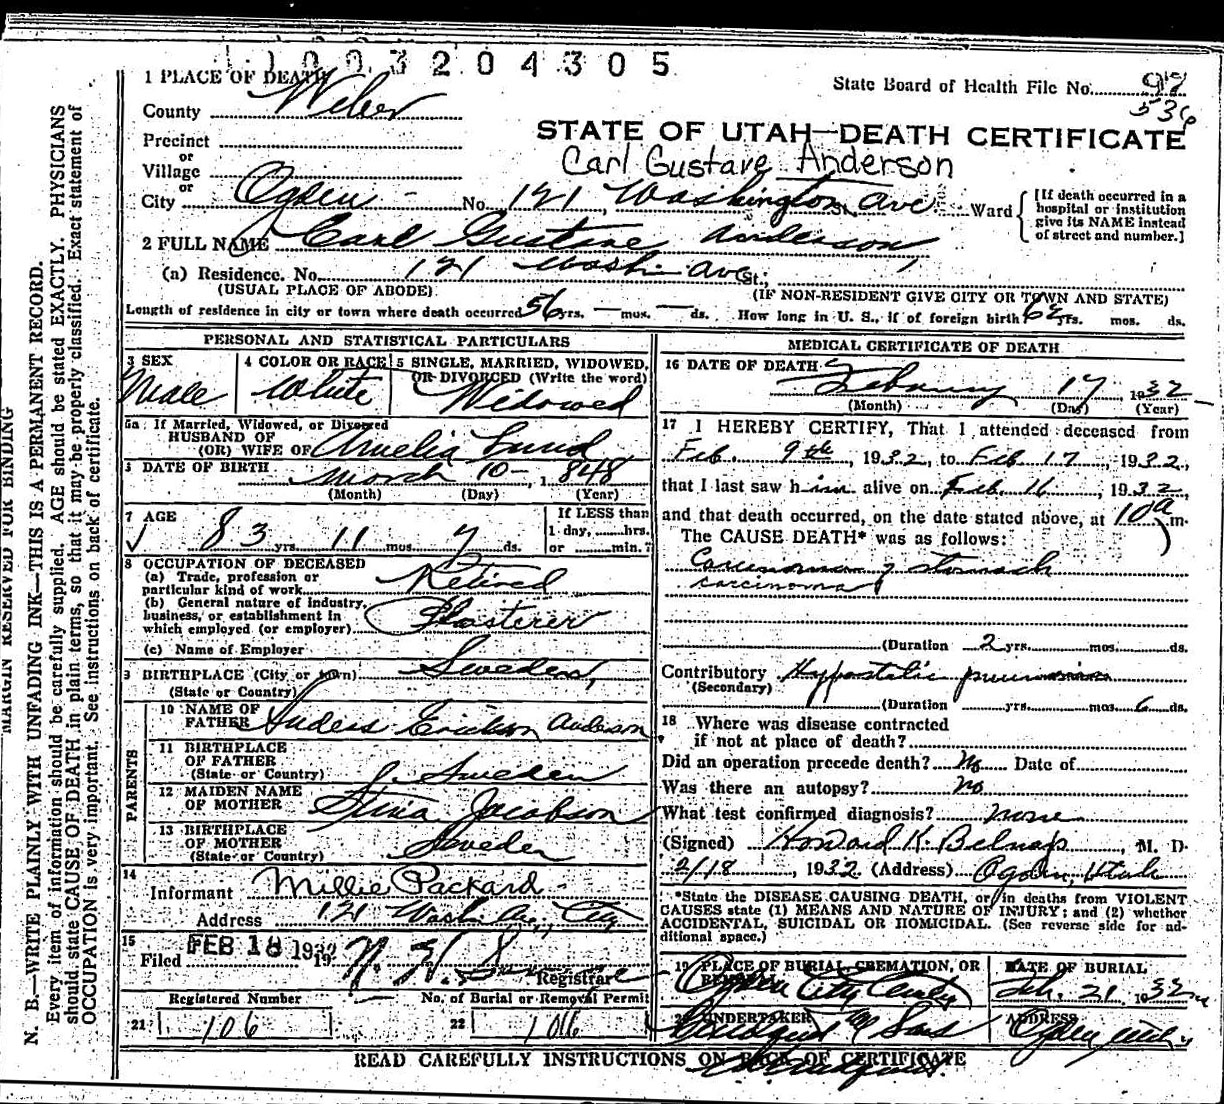 1003204305
1 PLACE OF DEATH
State Board of Health File No. 97
536
County Weber
Precinct
or
Village
or
STATE OF UTAH—DEATH CERTIFICATE
Carl Gustave Anderson
City Ogden No. 121 Washington Ave St. Ward
[If death occurred in a hospital or institution give its NAME instead of street and number.]
2 FULL NAME Carl Gustave Anderson
(a) Residence. No. 121 Wash. Ave St.;
(USUAL PLACE OF ABODE) (IF NON-RESIDENT GIVE CITY OR TOWN AND STATE)
Length of residence in city or town where death occurred 56 yrs. — mos. — ds. How long in U. S., if of foreign birth 62 yrs. mos. ds.
PERSONAL AND STATISTICAL PARTICULARS
3 SEX Male
4 COLOR OR RACE White
5 SINGLE, MARRIED, WIDOWED, OR DIVORCED (Write the word) Widowed
5a If Married, Widowed, or Divorced
HUSBAND OF
(OR) WIFE OF Amelia Lund
DATE OF BIRTH March 10 - 1848
(Month) (Day) (Year)
7 AGE 83 yrs. 11 mos 7 ds.
If LESS than
1 day, ......hrs.
or ......min.?
8 OCCUPATION OF DECEASED
(a) Trade, profession or
particular kind of work Retired
(b) General nature of industry,
business, or establishment in
which employed (or employer) Plasterer
(c) Name of Employer
BIRTHPLACE (City or town) Sweden,
(State or Country)
PARENTS
10 NAME OF
FATHER Anders Erickson Anderson
11 BIRTHPLACE
OF FATHER
(State or Country) Sweden
12 MAIDEN NAME
OF MOTHER Stina Jacobson
13 BIRTHPLACE
OF MOTHER
(State or Country) Sweden
14
Informant Millie Packard
Address 121 Wash Ave, City
15
Filed FEB 18 1932
Registrar
Registered Number
21 106
No. of Burial or Removal Permit
22 106
MEDICAL CERTIFICATE OF DEATH
16 DATE OF DEATH
February 17 1932
(Month) (Day) (Year)
17 I HEREBY CERTIFY, That I attended deceased from
Feb. 9th, 1932, to Feb 17, 1932,
that I last saw him alive on Feb. 16, 1932,
and that death occurred, on the date stated above, at 10a m.
The CAUSE DEATH* was as follows:
Carcinoma of stomach
carcinoma
(Duration 2 yrs. mos. ds.
Contributory Hypostatic pneumonia
(Secondary)
(Duration yrs. mos. 6 ds.
18 Where was disease contracted
if not at place of death?
Did an operation precede death? No Date of
Was there an autopsy? no
What test confirmed diagnosis? none
(Signed) Howard K. Belnap, M. D.
2/18, 1932 (Address) Ogden, Utah
*State the DISEASE CAUSING DEATH, or in deaths from VIOLENT
CAUSES state (1) MEANS AND NATURE OF INJURY; and (2) whether
ACCIDENTAL, SUICIDAL OR HOMICIDAL. (See reverse side for ad-
ditional space.)
19 PLACE OF BURIAL, CREMATION, OR
REMOVAL
Ogden City Cemetery
DATE OF BURIAL
Feb. 21 1932
20 UNDERTAKER Lindquist & Sons
ADDRESS Ogden, Utah
READ CAREFULLY INSTRUCTIONS ON BACK OF CERTIFICATE
MARGIN RESERVED FOR BINDING
N. B.—WRITE PLAINLY WITH UNFADING INK—THIS IS A PERMANENT RECORD.
Every item of information should be carefully supplied. AGE should be stated EXACTLY. PHYSICIANS
should state CAUSE OF DEATH in plain terms, so that it may be properly classified. Exact statement of
OCCUPATION is very important. See instructions on back of certificate.